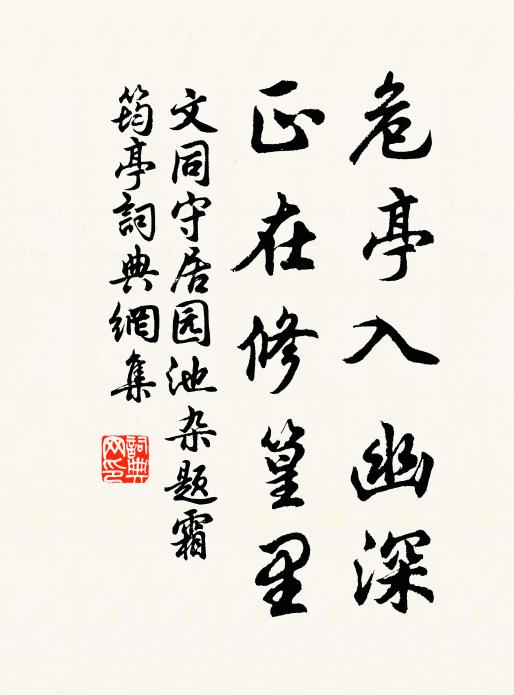 危亭入幽深
正在修篁里
文同守居园池杂题霜
筠亭詞典網集
詞典
网印